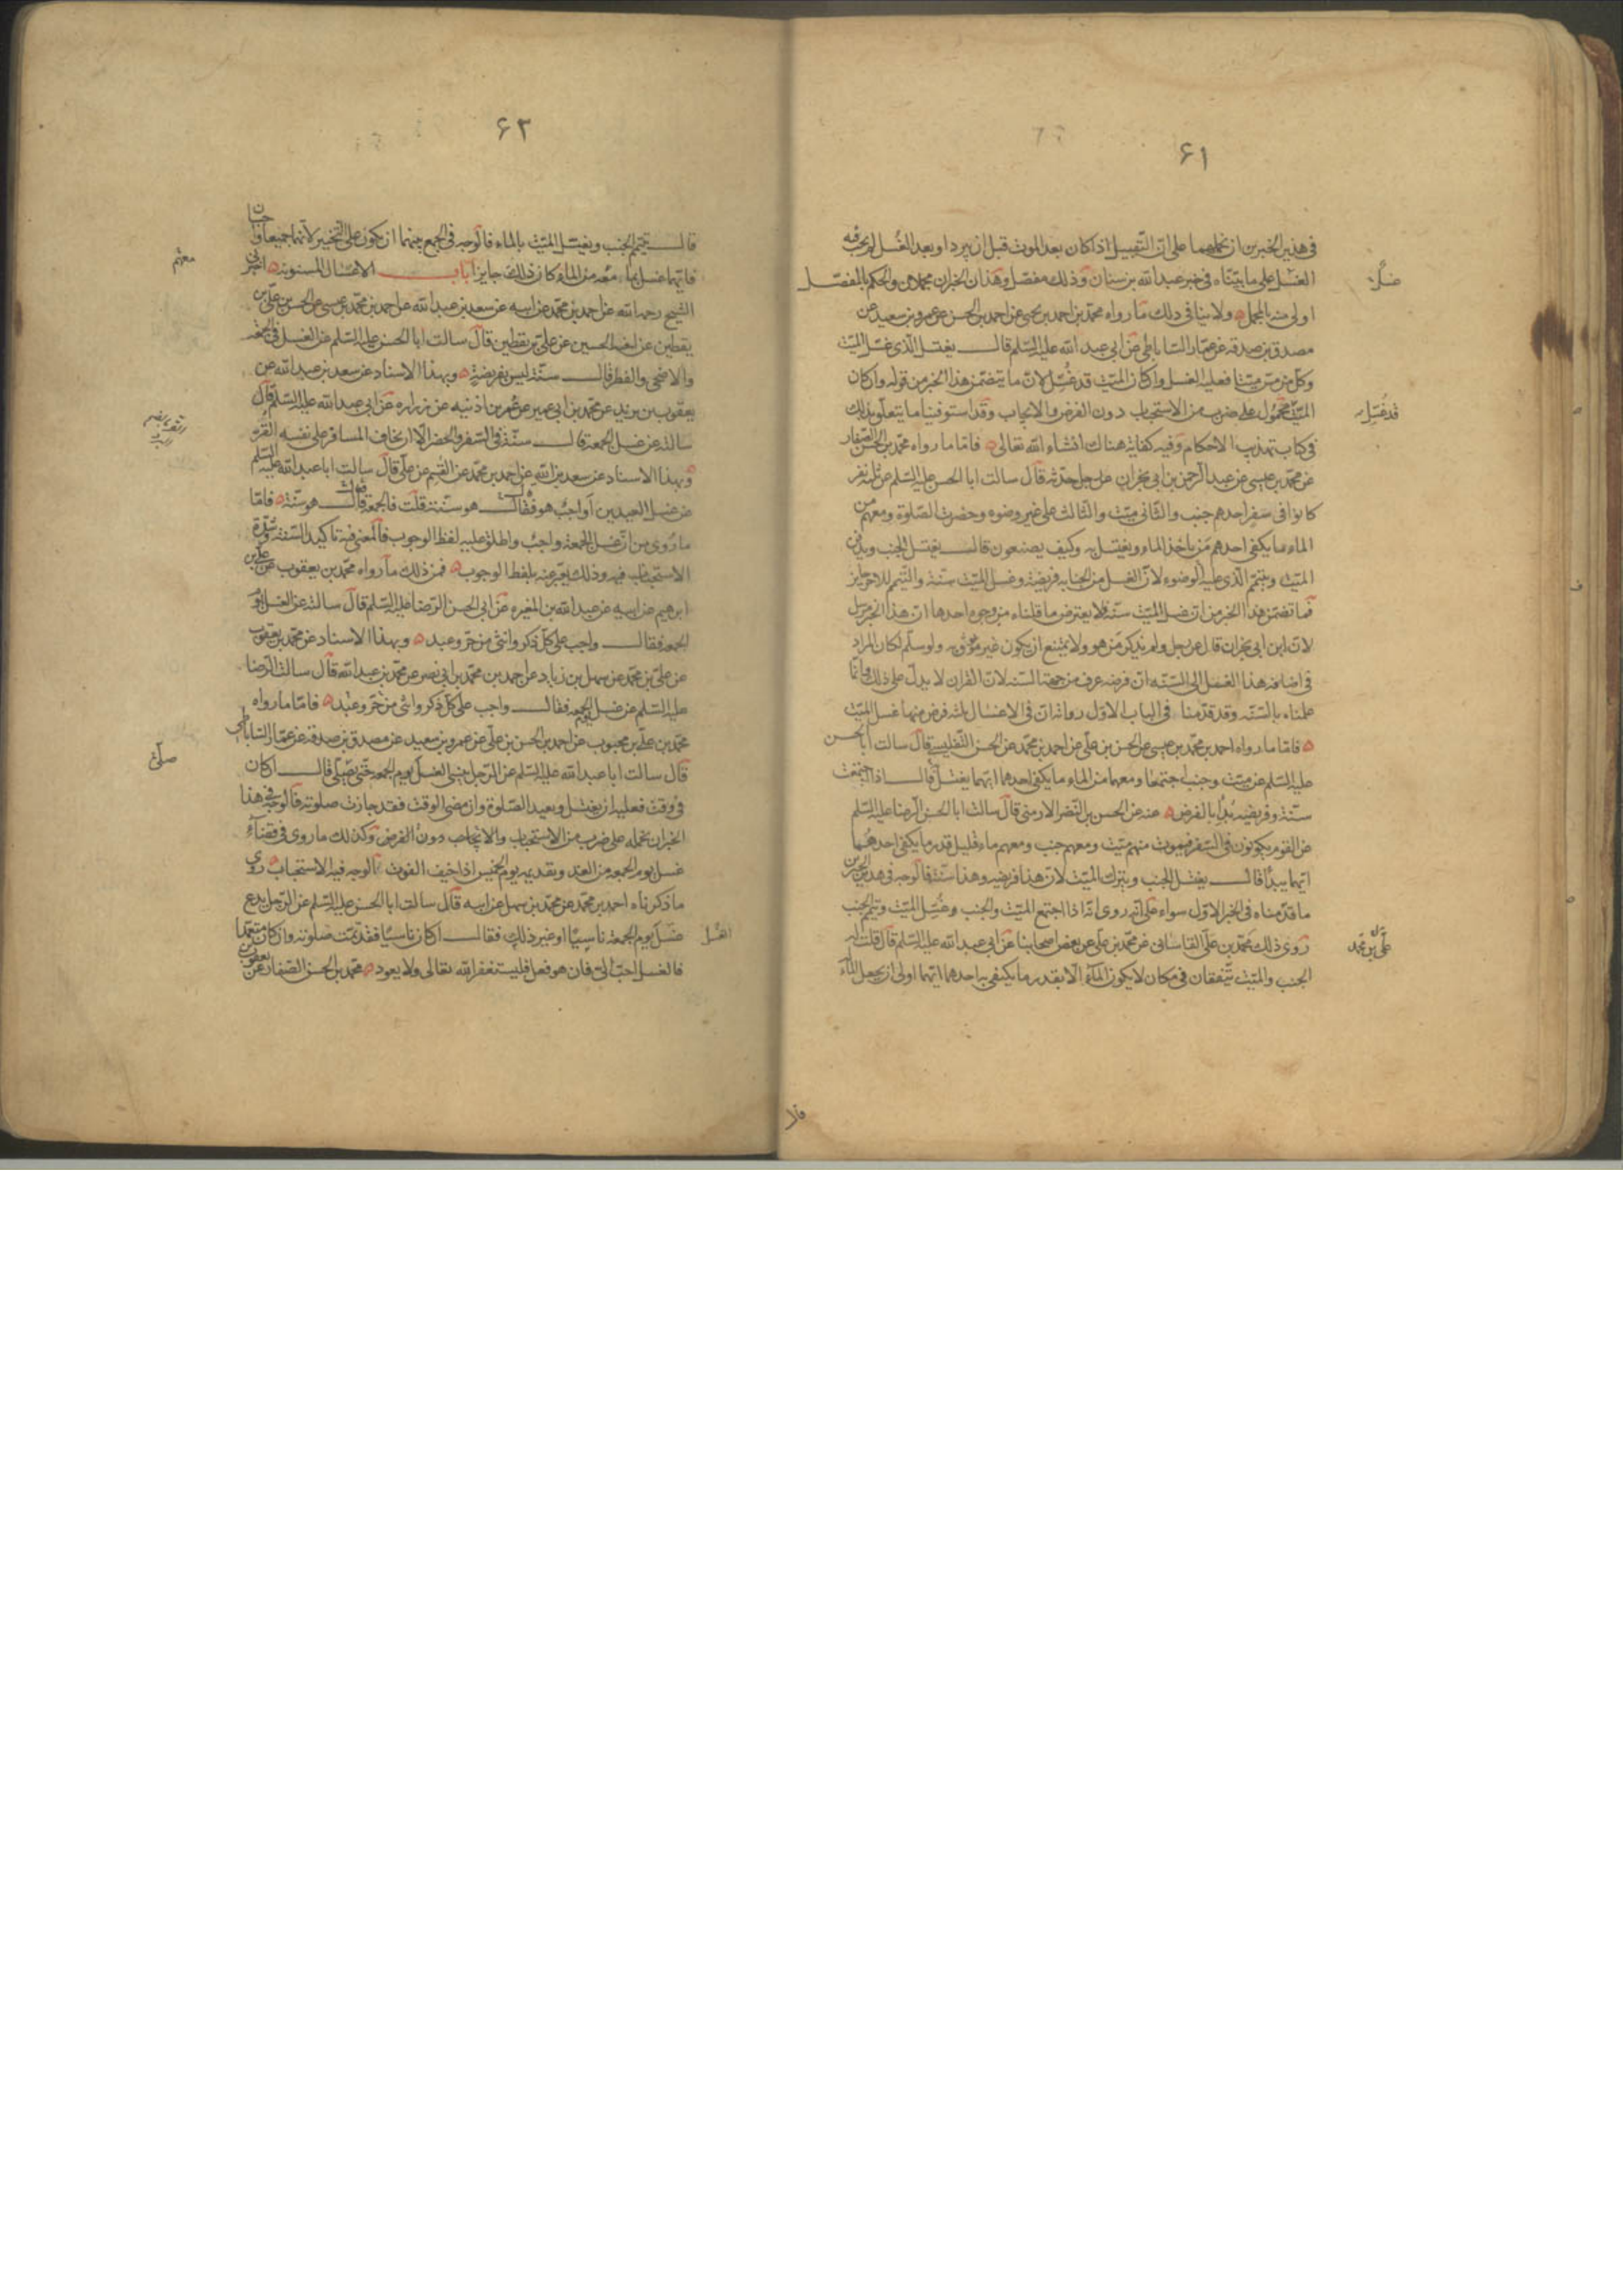 ۶۱
فى هذين الخبرين ان نحملهما على ان التقبيل اذا كان بعد الموت قبل ان يبرد او بعد الغسل لم يجب فيه
الغسل على ما بيّنّاه فى خبر عبد الله بن سنان وذلك مفصّل وهذان الخبران مجملان والحكم بالمفصّل
اولى منه بالمجمل ولا ينافى ذلك ما رواه محمّد بن احمد بن يحيى عن احمد بن الحسن عن عمرو بن سعيد عن
مصدق بن صدقه عن عمّار السّاباطى عن ابى عبد الله عليه السّلم قال يغتسل الّذى غسّل الميّت
وكلّ من مسّ ميّتا فعليه الغسل وان كان الميّت قد غُسِّل لانّ ما يتضمّن هذا الخبر من قوله وان كان
الميّت محمول على ضرب من الاستحباب دون الفرض والايجاب وقد استوفينا ما يتعلّق بذلك
قد غُسِّل
فى كتاب تهذيب الاحكام وفيه كفاية هناك انشاء الله تعالى فامّا ما رواه محمّد بن الحسن الصفار
عن محمّد بن عيسى عن عبد الرّحمن بن ابى نجران عن رجل حدّثه قال سالت ابا الحسن عليه السّلم عن ثلثه نفر
كانوا فى سفر احدهم جنب والثّانى ميّت والثّالث على غير وضوء وحضرت الصّلوة ومعهم من
الماء ما يكفى احدهم مَن ياخذ الماء ويغتسل به وكيف يصنعون قال يغتسل الجنب ويدفن
الميّت ويتيمّم الّذى عليه الوضوء لانّ الغسل من الجنابه فريضة وغسل الميّت سنّة والتّيمّم للاخر جايز
فما تضمّن هذا الخبر من انّ غسل الميّت سنّة فلا يعترض ما قلناه من وجوه احدها انّ هذا الخبر مرسل
لانّ ابن ابى نجران قال عن رجل ولم يذكر من هو ولا يمتنع ان يكون غير موثوق به ولو سلّم لكان المراد
فى اضافة هذا الغسل الى السّنّه انّ فرضه عرف من جهة السّنه لانّ القران لا يدلّ على ذلك وانّما
علمناه بالسّنّه وقد قدّمنا فى الباب الاوّل رواية انّ فى الاغسال ثلثة فرض منها غسل الميّت
فامّا ما رواه احمد بن محمّد بن عيسى عن الحسن بن علّى عن احمد بن محمّد عن الحسن التّفليسى قال سالت ابا الحسن
عليه السّلم عن ميّت وجنب اجتمعا ومعهما من الماء ما يكفى احدهما ايّهما يغتسل قال اذا اجتمعت
سنّة وفريضه بُدئ بالفرض عنه عن الحسن بن النّضر الارمنى قال سالت ابا الحسن الرّضا عليه السّلم
عن القوم يكونون فى السّفر فيموت منهم ميّت ومعهم جنب ومعهم ماء قليل قدر ما يكفى احدهما
ايّهما يبدأ قال يغتسل الجنب ويترك الميّت لانّ هذا فريضه وهذا سنّة فالوجه فى هذين الخبرين
ما قدّمناه فى الخبر الاوّل سواء على انّه روى انّه اذا اجتمع الميّت والجنب وغُسّل الميّت وتيمّم الجنب
روى ذلك محمّد بن علّى القاسانى عن محمّد بن علّى عن بعض اصحابنا عن ابى عبد الله عليه السّلم قال قلت له
علّى بن محمّد
الجنب والميّت يتّفقان فى مكان لا يكون الماء الّا بقدر ما يكتفى به احدهما ايّهما اولى ان يجعل الماء
فلا
۶۲
قال يتيمّم الجنب ويغسّل الميّت بالماء فالوجه فى الجمع بينهما ان يكون على التّخيير لانّهما جميعا واجبان
فايّهما غسل بما معه من الماء كان ذلك جايزا باب الاغسال المسنونه اخبرنى
معهم
الشيخ رحمه الله عن احمد بن محمّد عن ابيه عن سعد بن عبد الله عن احمد بن محمّد بن عيسى عن الحسن بن علّى بن
يقطين عن اخيه الحسين عن علّى بن يقطين قال سالت ابا الحسن عليه السّلم عن الغسل فى الجمعه
والاضحى والفطر قال سنّة ليس بفريضة وبهذا الاسناد عن سعد بن عبد الله عن
يعقوب بن يزيد عن محمّد بن ابى عمير عن عمر بن اذنيه عن زراره عن ابى عبد الله عليه السّلم قال
سالته عن غسل الجمعة قال سنّة فى السّفر والحضر الّا ان يخاف المسافر على نفسه القرّ
وبهذا الاسناد عن سعد بن عبد الله عن احمد بن محمّد عن القسم عن علّى قال سالت ابا عبد الله عليه السّلم
عن غسل العيدين أواجبٌ هو فقال هو سنّة قلت فالجمعة قال هو سنّة فامّا
ما رُوى من انّ غسل الجمعة واجب واطلق عليه لفظ الوجوب فالمعنى فيه تاكيد السّنّة وشدّة
الاستحباب فيه وذلك يعبّر عنه بلفظ الوجوب فمن ذلك ما رواه محمّد بن يعقوب عن علّى بن
ابرهيم عن ابيه عن عبد الله بن المغيره عن ابى الحسن الرّضا عليه السّلم قال سالته عن الغسل يوم
الجمعه فقال واجب على كلّ ذكر وانثى من حرّ وعبد وبهذا الاسناد عن محمّد بن يعقوب
عن علّى بن محمّد عن سهل بن زياد عن احمد بن محمّد بن ابى نصر عن محمّد بن عبد الله قال سالت الرّضا
عليه السّلم عن غسل يوم الجمعه فقال واجب على كلّ ذكر وانثى من حرّ وعبد فامّا ما رواه
محمّد بن علّى بن محبوب عن احمد بن الحسن بن علّى عن عمرو بن سعيد عن مصدق بن صدقة عن عمّار السّاباطى
قال سالت ابا عبد الله عليه السّلم عن الرّجل ينسى الغسل يوم الجمعه حتّى يصلّى قال ان كان
صلّى
فى وقت فعليه ان يغتسل ويعيد الصّلوة وان مضى الوقت فقد جازت صلوته فالوجه فى هذا
الخبر ان نحمله على ضرب من الاستحباب والايجاب دون الفرض وكذلك ما روى فى قضاء
غسل يوم الجمعه من الغد وتقديمه يوم الخميس اذا خيف الفوت الوجه فيه الاستحباب روى
ما ذكرناه احمد بن محمّد عن محمّد بن سهل عن ابيه قال سالت ابا الحسن عليه السّلم عن الرّجل يدع
غسل يوم الجمعة ناسيًا او غير ذلك فقال ان كان ناسيًا فقد تمّت صلوته وان كان متعمّدا
الغُسل
فالغسل احبّ الىّ فان هو فعل فليستغفر الله تعالى ولا يعود محمّد بن الحسن الصّفار عن يعقوب